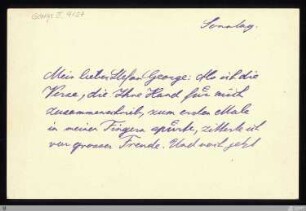 George III, 4127
Sonntag.
Mein lieber Stefan George: Als ich die
Verse, die Ihre Hand für mich
zusammenschrieb, zum ersten Male
in meinen Fingern spürte, zitterte ich
vor grosser Freude. Und noch jetzt